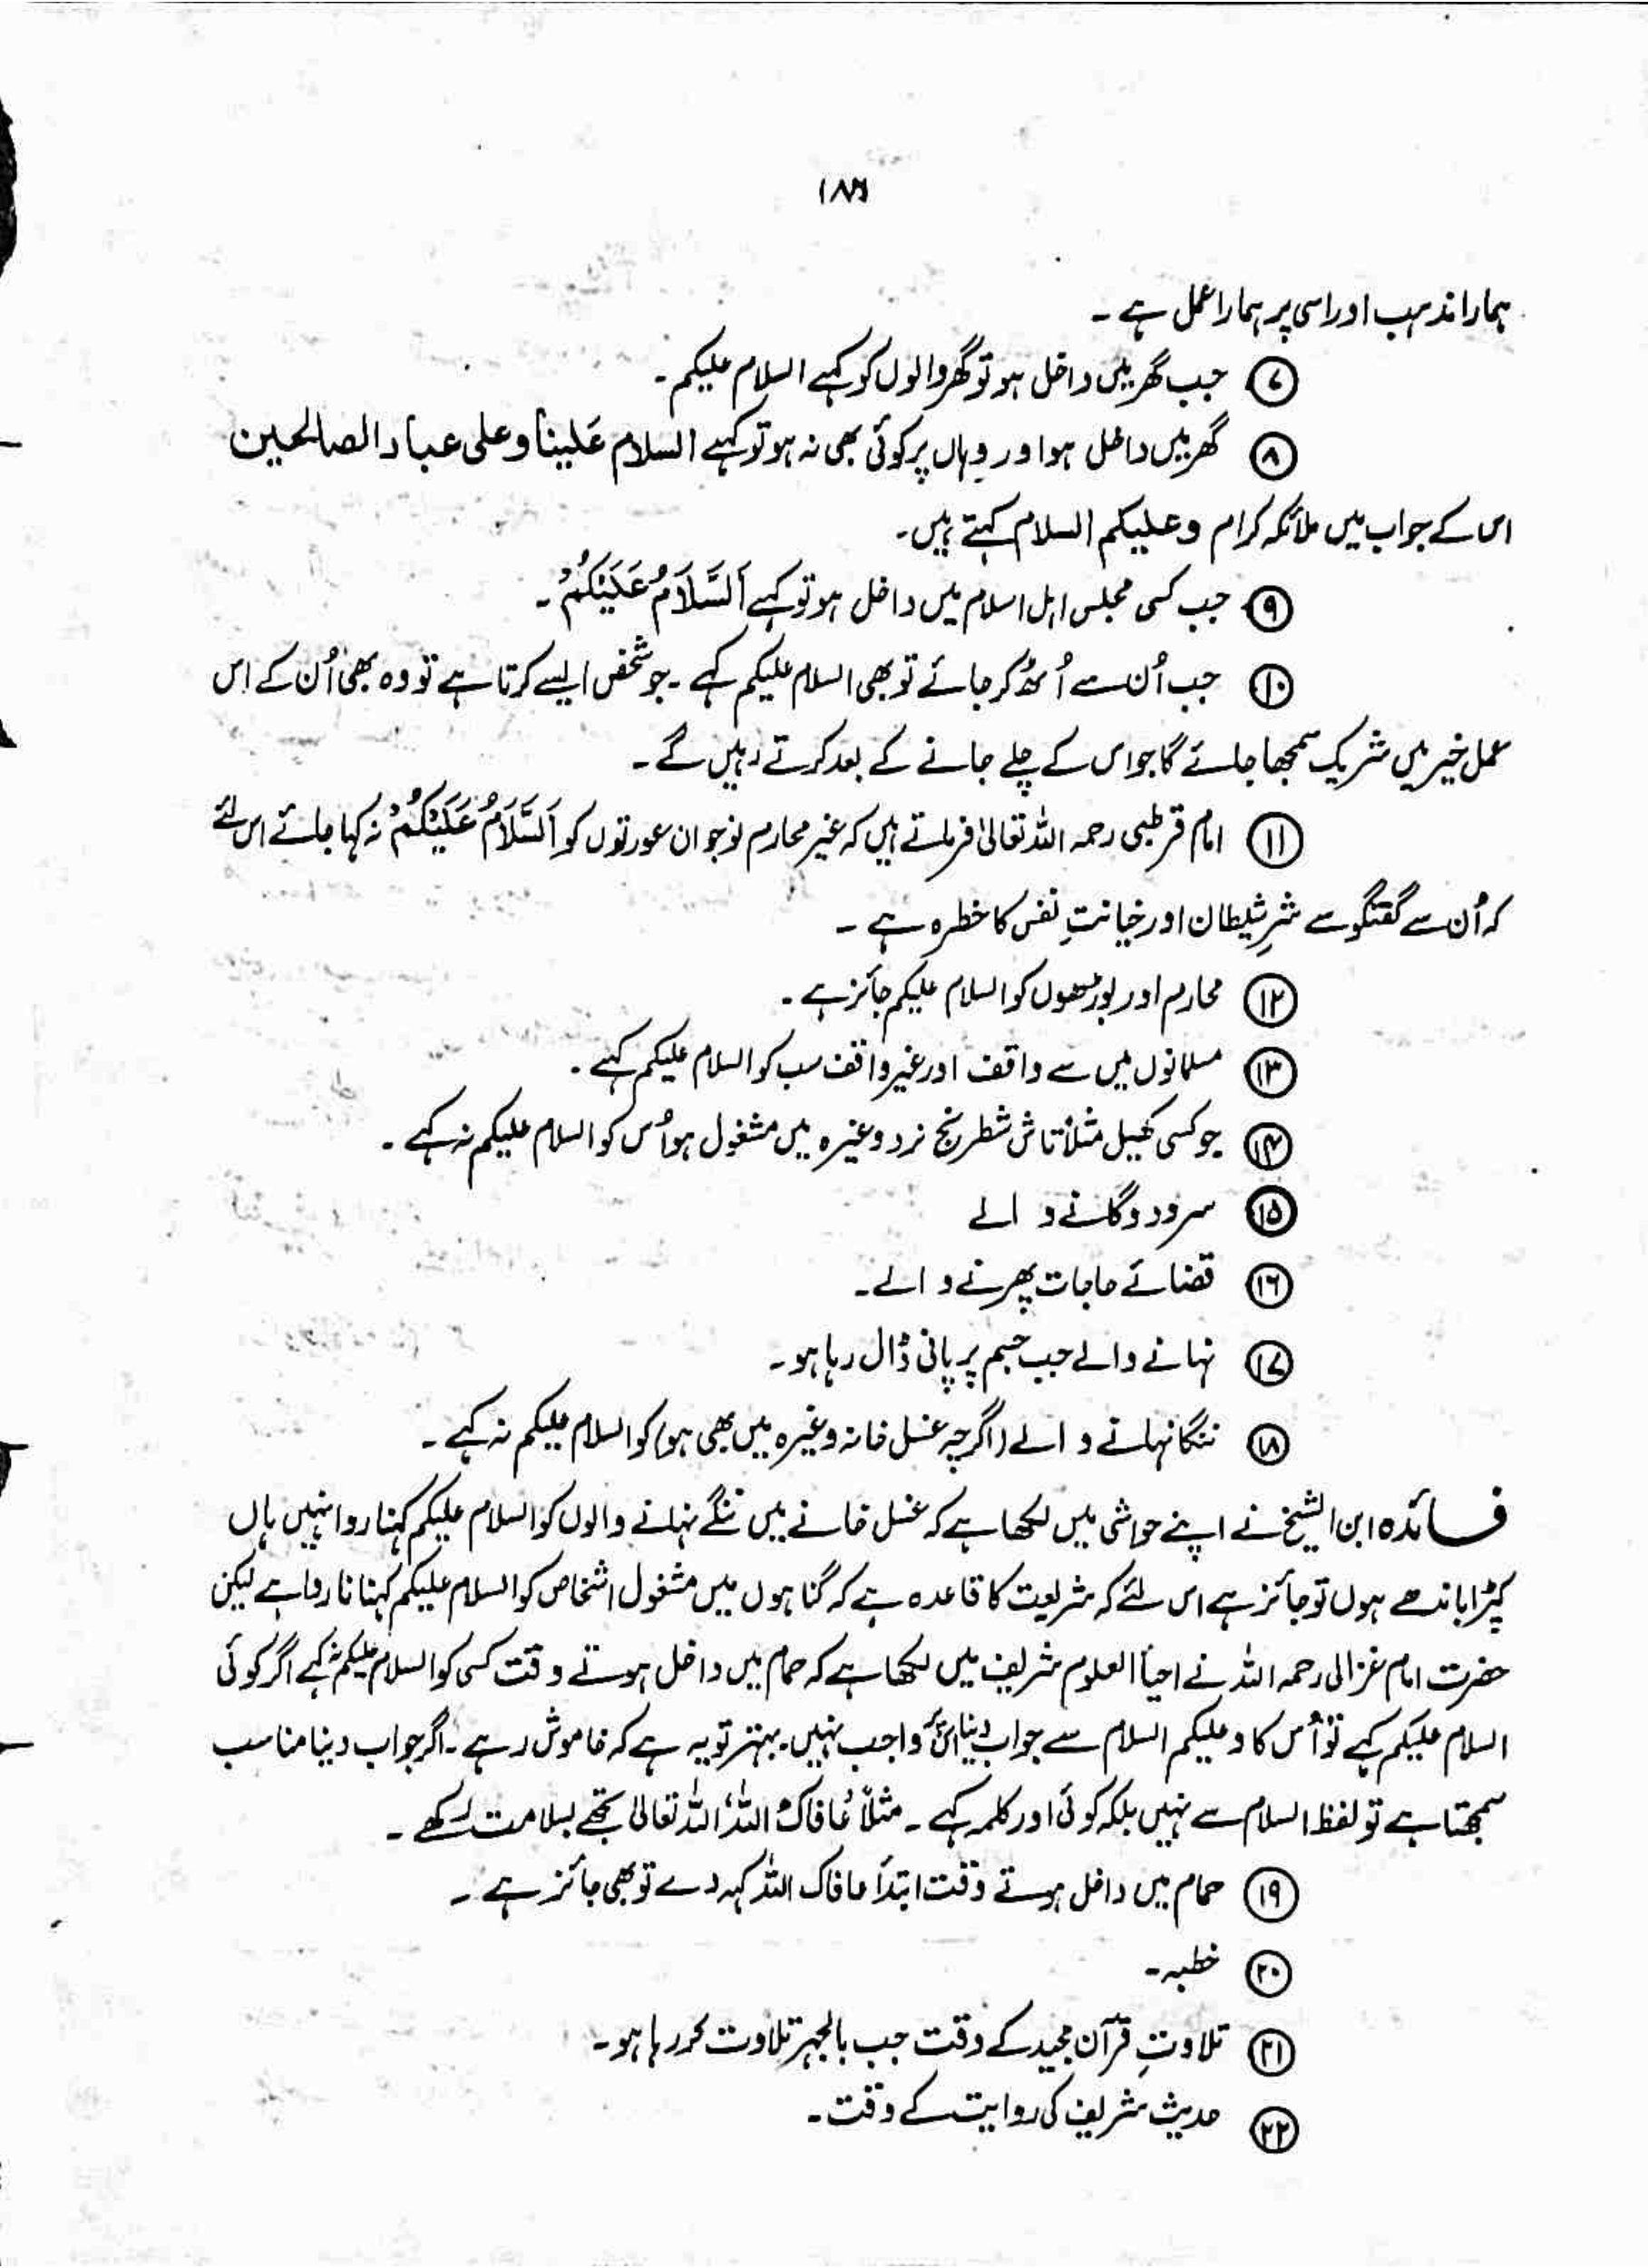 ۱۸۶
ہمارا مذہب اور اسی پر ہمارا عمل ہے ۔
⑦ جب گھر میں داخل ہو تو گھر والوں کو کہے السلام علیکم ۔
⑧ گھر میں داخل ہوا ور وہاں پر کوئی بھی نہ ہو تو کہے السلام عَلینا وعلی عباد الصالحین
اس کے جواب میں ملائکہ کرام وعلیکم السلام کہتے ہیں۔
⑨ جب کسی مجلس اہل اسلام میں داخل ہو تو کہے اَلسَّلَامُ عَلَیْکُمْ ۔
⑩ جب اُن سے اُٹھ کر جائے تو بھی السلام علیکم کہے ۔ جو شخص ایسے کرتا ہے تو وہ بھی اُن کے اِس
عمل خیر میں شریک سمجھا جائے گا جو اس کے چلے جانے کے بعد کرتے رہیں گے ۔
⑪ امام قرطبی رحمہ اللہ تعالیٰ فرماتے ہیں کہ غیر محارم نوجوان عورتوں کو اَلسَّلَامُ عَلَیْکُمْ نہ کہا جائے اس لئے
کہ اُن سے گفتگو سے شرِ شیطان اور خیانتِ نفس کا خطرہ ہے ۔
⑫ محارم اور بوڑھوں کو السلام علیکم جائز ہے ۔
⑬ مسلمانوں میں سے واقف اور غیر واقف سب کو السلام علیکم کہے ۔
⑭ جو کسی کھیل مثلاً تاش شطرنج نرد وغیرہ میں مشغول ہو اُس کو السلام علیکم نہ کہے ۔
⑮ سرود و گانے والے
⑯ قضائے حاجات پھرنے والے۔
⑰ نہانے والے جب جسم پر پانی ڈال رہا ہو ۔
⑱ ننگا نہانے والے (اگرچہ غسل خانہ وغیرہ میں بھی ہو) کو السلام علیکم نہ کہے ۔
فائدہ ابن الشیخ نے اپنے حواشی میں لکھا ہے کہ غسل خانے میں ننگے نہانے والوں کو السلام علیکم کہنا روا نہیں ہاں
کپڑا باندھے ہوں تو جائز ہے اس لئے کہ شریعت کا قاعدہ ہے کہ گناہوں میں مشغول اشخاص کو السلام علیکم کہنا ناروا ہے لیکن
حضرت امام غزالی رحمہ اللہ نے احیأ العلوم شریف میں لکھا ہے کہ حمام میں داخل ہوتے وقت کسی کو السلام علیکم نہ کہے اگر کوئی
السلام علیکم کہے تو اُس کا وعلیکم السلام سے جواب دینا واجب نہیں۔ بہتر تو یہ ہے کہ خاموش رہے ۔ اگر جواب دینا مناسب
سمجھتا ہے تو لفظ السلام سے نہیں بلکہ کوئی اور کلمہ کہے ۔ مثلاً عُافاک اللہُ، اللہ تعالیٰ تجھے بسلامت رکھے ۔
⑲ حمام میں داخل ہوتے وقت ابتدأ عافاک اللہ کہہ دے تو بھی جائز ہے ۔
⑳ خطبہ ۔
㉑ تلاوتِ قرآن مجید کے وقت جب بالجہر تلاوت کر رہا ہو ۔
㉒ حدیث شریف کی روایت کے وقت ۔